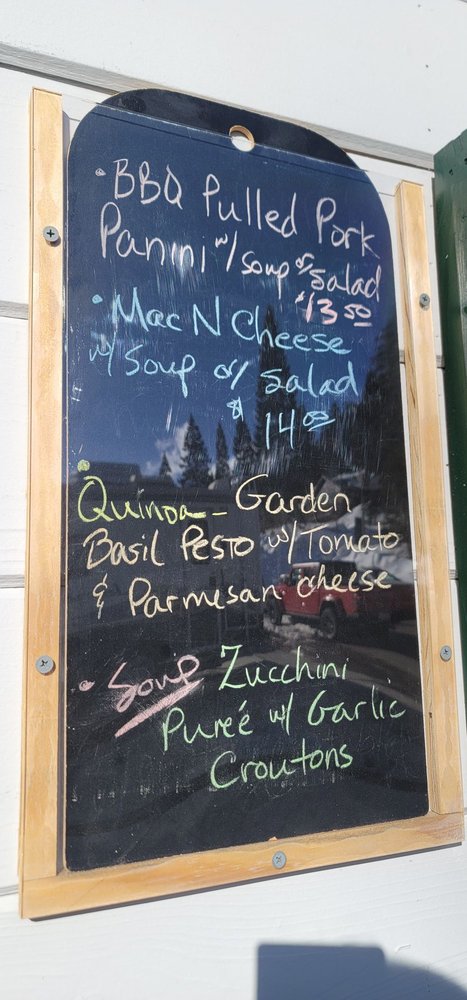 • BBQ Pulled Pork
Panini w/ soup or salad
$13.50
• Mac N Cheese
w/ Soup or salad
$14.00
• Quinoa - Garden
Basil Pesto w/ Tomato
& Parmesan cheese
• Soup Zucchini
Pureé w/ Garlic
Croutons